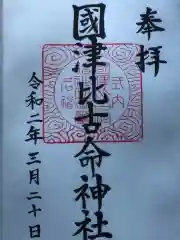 奉拝
國津比古命神社
令和二年三月二十日
式内